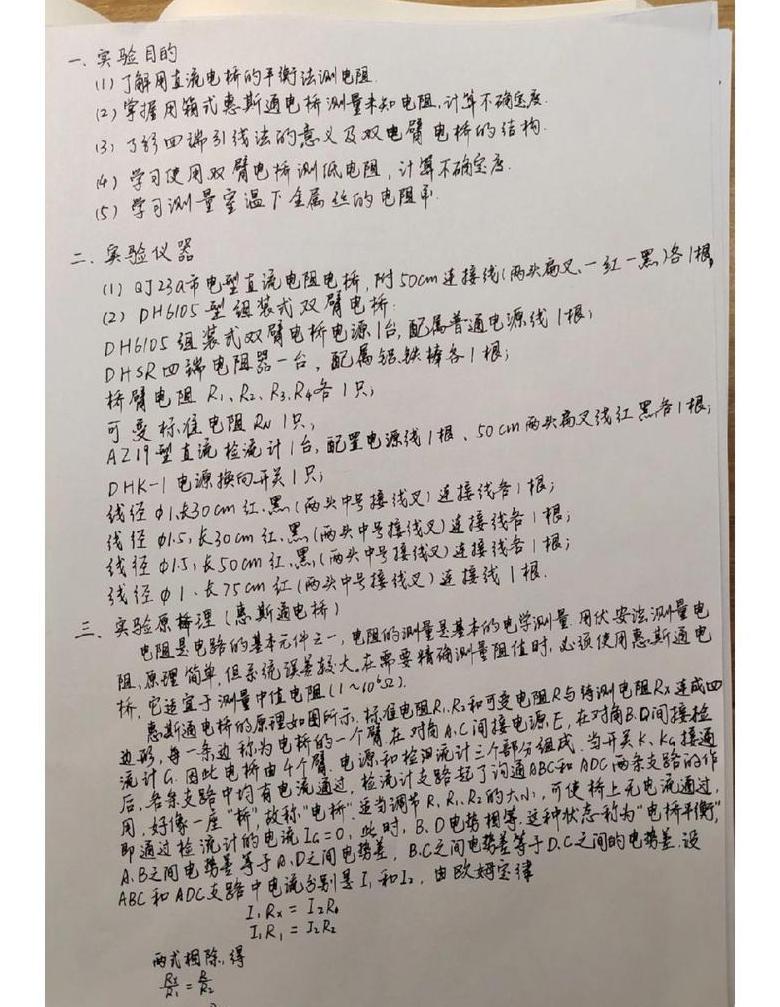 一、实验目的
(1) 了解用直流电桥的平衡法测电阻.
(2) 掌握用箱式惠斯通电桥测量未知电阻,计算不确定度.
(3) 了解四端引线法的意义及双电臂电桥的结构.
(4) 学习使用双臂电桥测低电阻,计算不确定度.
(5) 学习测量室温下金属丝的电阻率.
二、实验仪器
(1) QJ23a市电型直流电阻电桥,附50cm连接线(两头扁叉、一红一黑)各1根,
(2) DH6105型组装式双臂电桥:
DH6105组装式双臂电桥电源1台,配属普通电源线1根;
DHSR四端电阻器一台,配属铝、铁棒各1根;
桥臂电阻 R₁、R₂、R₃、R₄各1只;
可变标准电阻RN 1只;
AZ19型直流检流计1台,配置电源线1根、50cm两头扁叉线红黑各1根;
DHK-1电源换向开关1只;
线径Φ1、长30cm红、黑(两头中号接线叉)连接线各1根;
线径Φ1.5、长30cm红、黑(两头中号接线叉)连接线各1根;
线径Φ1.5、长50cm红、黑(两头中号接线叉)连接线各1根;
线径Φ1、长75cm红(两头中号接线叉)连接线1根.
三、实验原理(惠斯通电桥)
电阻是电路的基本元件之一,电阻的测量是基本的电学测量.用伏安法测量电
阻,原理简单,但系统误差较大.在需要精确测量阻值时,必须使用惠斯通电
桥,它适宜于测量中值电阻(1~10⁶Ω).
惠斯通电桥的原理如图所示.标准电阻R₁、R₂和可变电阻R与待测电阻Rx连成四
边形,每一条边称为电桥的一个臂.在对角A.C间接电源E,在对角B.D间接检
流计G.因此电桥由4个臂、电源和检测流计三个部分组成.当开关K、KG接通
后,各条支路中均有电流通过,检流计支路起了沟通ABC和ADC两条支路的作
用,好像一座"桥",故称"电桥".适当调节R、R₁、R₂的大小,可使桥上无电流通过,
即通过检流计的电流IG=0,此时,B.D电势相等.这种状态称为"电桥平衡",
A.B之间电势差等于A.D之间电势差,B.C之间电势差等于D.C之间的电势差.设
ABC和ADC支路中电流分别是I₁和I₂,由欧姆定律
I₁Rx = I₂R
I₁R₁ = I₂R₂
两式相除,得
Rx/R₁ = R/R₂